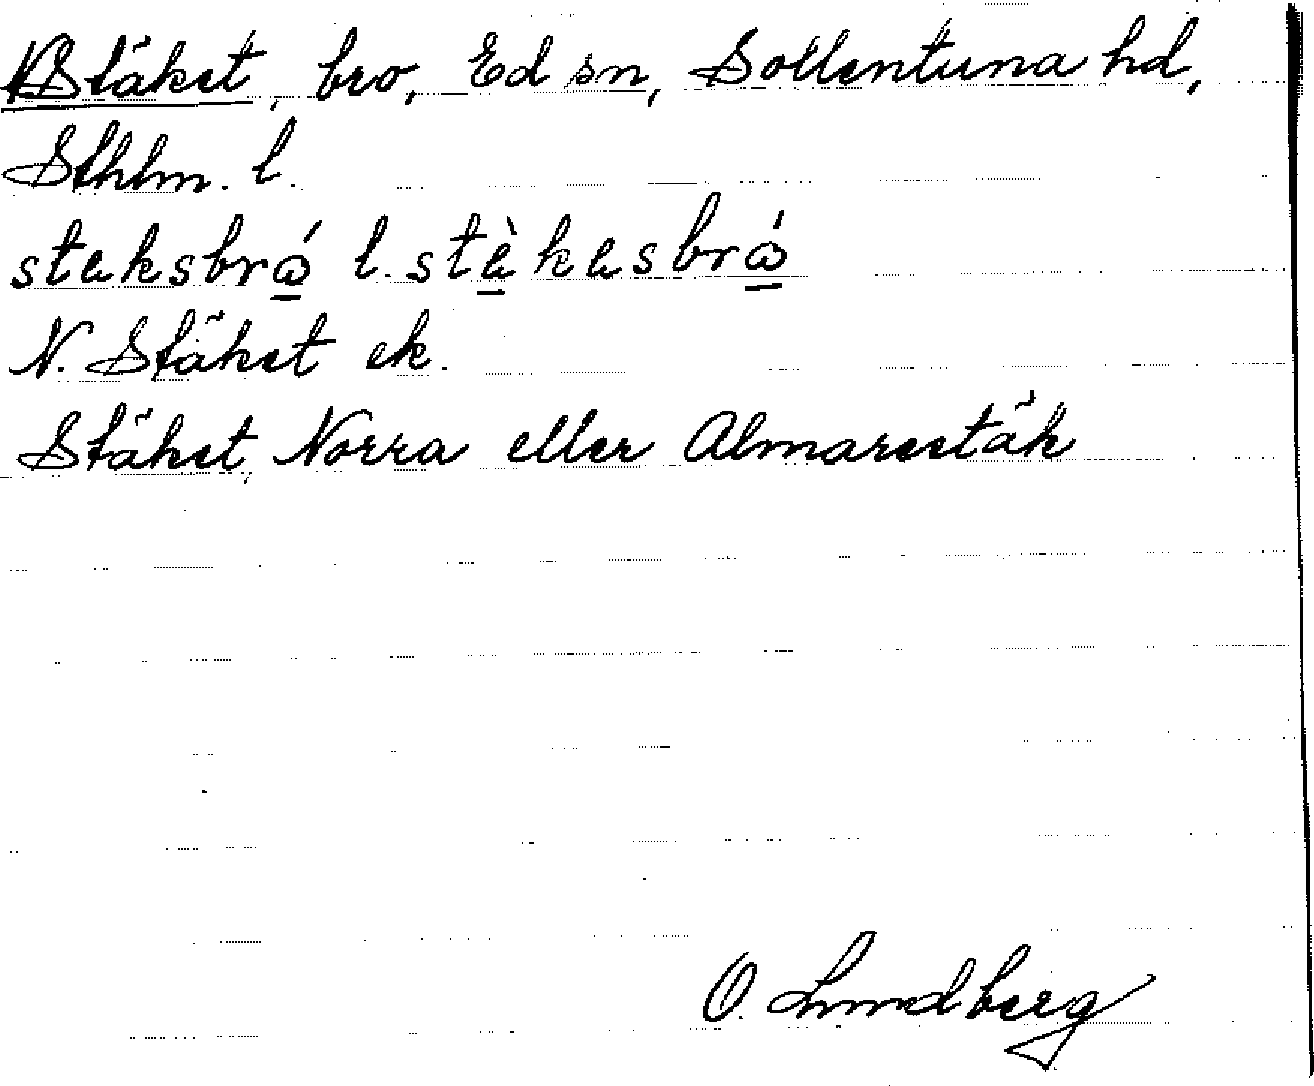 Stäket, bro, Ed sn, Sollentuna hd,
Sthlm. l.
steksbrǿ l. stèkesbrǿ
N. Stäket ek.
Stäket, Norra eller Almarestäk
O. Lundberg